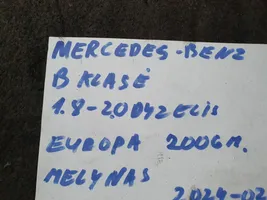 MERCEDES-BENZ
B KLASĖ
1.8-2.0 DYZELIS
EUROPA 2006M.
MELYNAS
2024-02